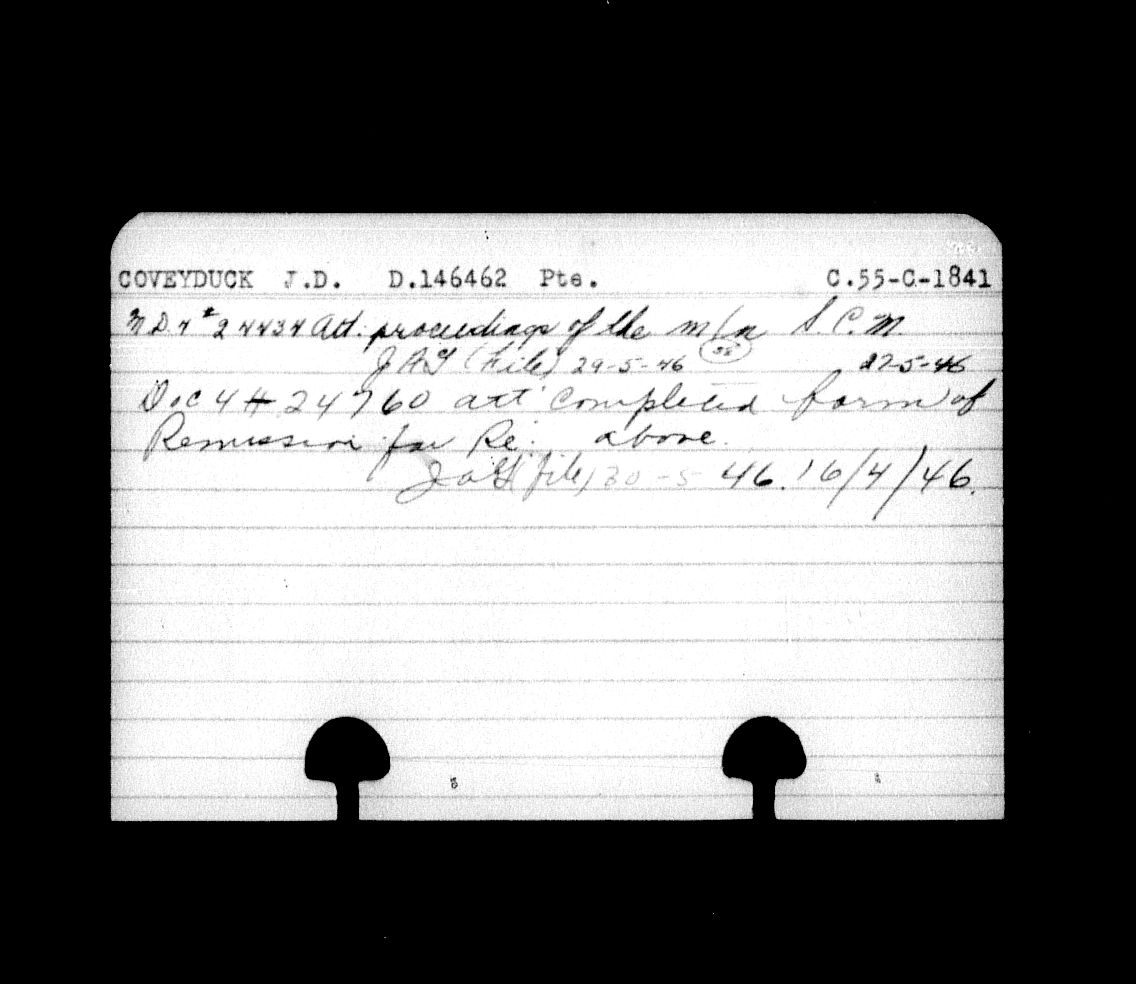 COVEYDUCK J.D. D.146462 Pte. C.55-C-1841
N.D.4 # 24434 Att. proceedings of the m/n S.C.M.
JAG (File) 29-5-46 55 27-5-46
Doc 4 # 24760 att completed form of
Remission for Re: above.
JAG (file) 30-5 46. 16/4/46.